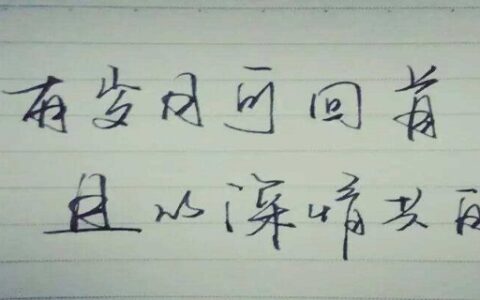 有岁月可回首
且以深情共